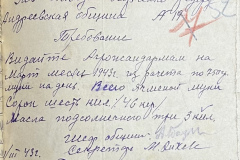 Андреевская община
Требование
Выдайте Агрожандармам на
Март месяц 1943г. из расчета по 250гр
муки на день. Всего Ячменной муки
Сорок шесть кил. /46 кгр/
Масла подсолнечного три 3 кил.
общины
Секретарь М.
III 43г.